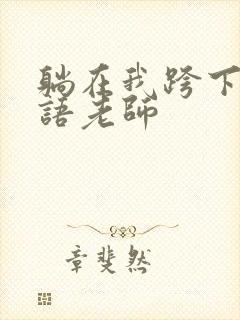 躺在我跨下
語老師
章斐然